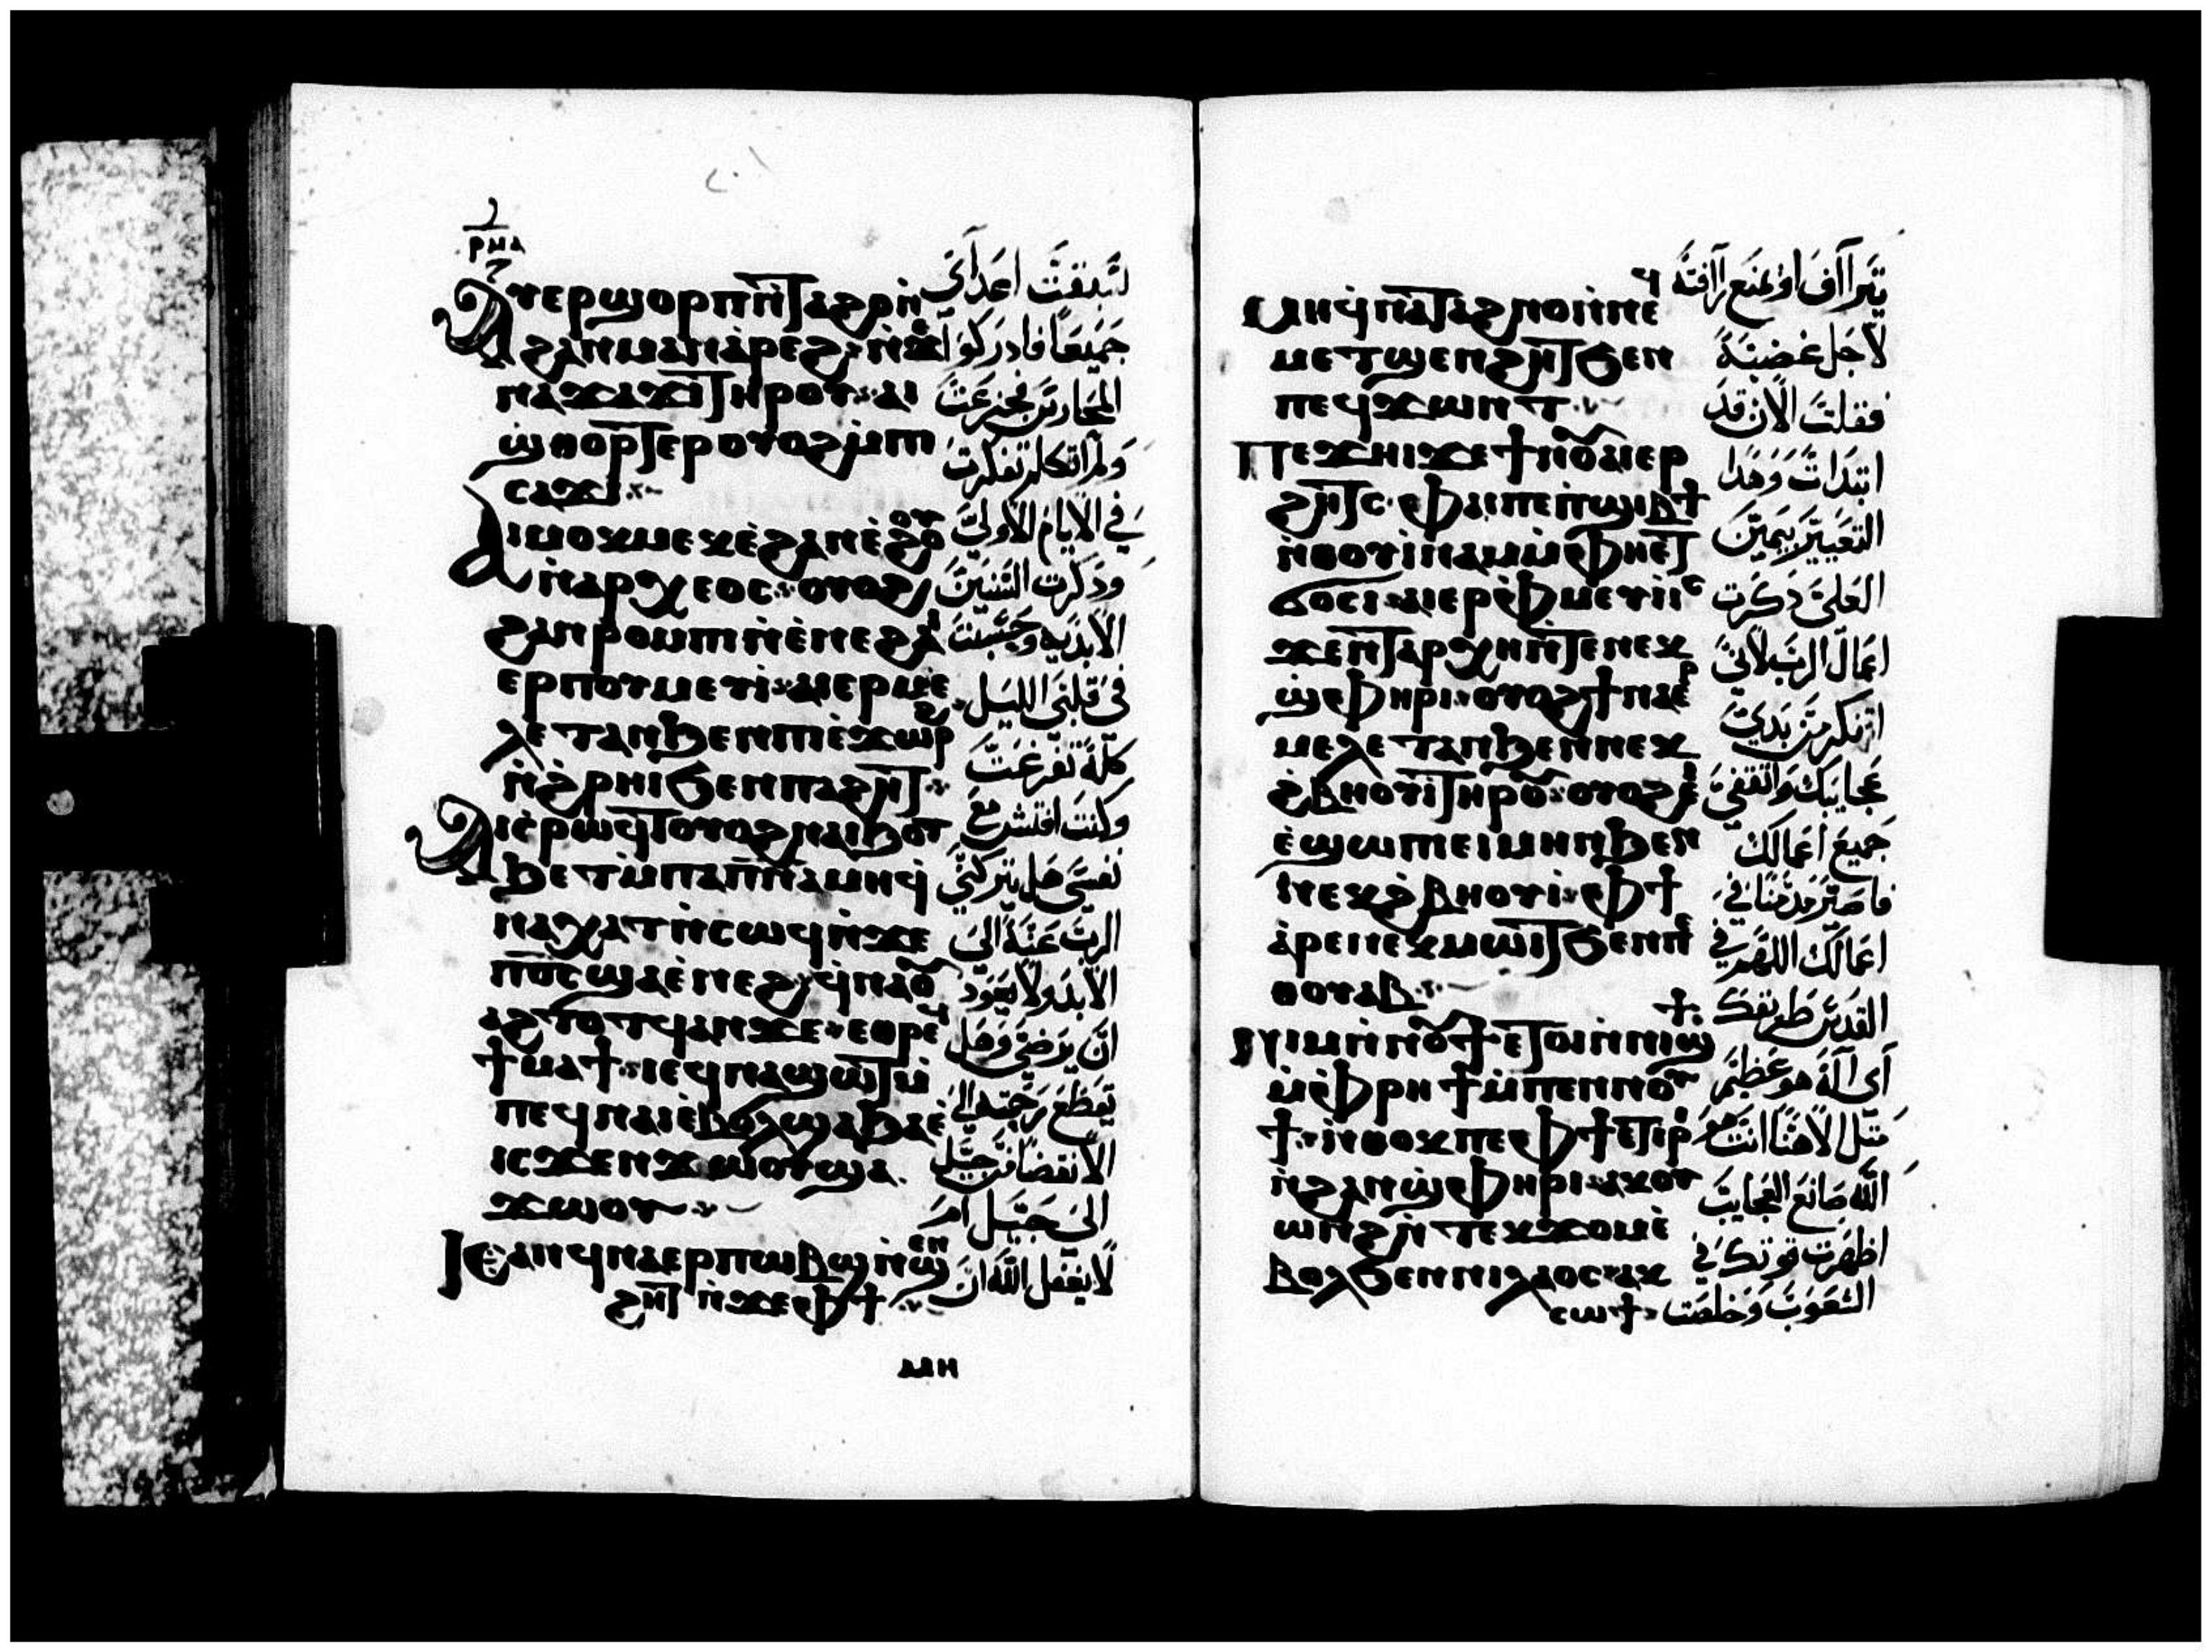 ⲣⲙⲁ
ⲁⲩⲉⲣϣⲟⲣⲡ ⲛ̀ⲧⲁϩⲣⲛ̀
ϩⲁⲛⲙⲁⲛ̀ⲁⲣⲉϩ ⲛ̀ϫⲉ
ⲛⲁϫⲁϫⲓ ⲧⲏⲣⲟⲩ ⲁⲓ
ϣ̀ⲑⲟⲣⲧⲉⲣ ⲟⲩⲟϩ ⲙ̀ⲡⲓ
ⲥⲁϫⲓ
ⲁⲓⲙⲟⲕⲙⲉⲕ ⲉ̀ϩⲁⲛⲉ̀ϩⲟⲟⲩ
ⲛ̀ⲁⲣⲭⲉⲟⲥ ⲟⲩⲟϩ
ϩⲁⲛⲣⲟⲙⲡⲓ ⲛ̀ⲉ̀ⲛⲉϩ ⲁⲓ
ⲉⲣⲡⲟⲩⲙⲉⲩⲓ ⲁⲓⲉⲣⲙⲉ
ⲗⲉⲧⲁⲛ ϧⲉⲛ ⲡⲓⲉ̀ϫⲱⲣϩ
ⲛ̀ϩ̀ⲣⲏⲓ ϧⲉⲛ ⲡⲁϩⲏⲧ
ⲁⲓⲉ̀ⲣⲱϥⲧ ⲟⲩⲟϩ ⲛⲁⲓϧⲟⲧ
ϧⲉⲧ ⲙ̀ⲡⲁⲡ̅ⲛ̅ⲁ̅ ⲙⲏ ϥ̀
ⲛⲁⲭⲁⲧ ⲛ̀ⲥⲱϥ ⲛ̀ϫⲉ
ⲡ⳪ ϣⲁ ⲉ̀ⲛⲉϩ ϥ̀ⲛⲁⲟⲩ
ⲁϩⲧⲟⲧϥ ⲁⲛ ϫⲉ ⲉⲑⲣⲉϥ
ϯⲙⲁϯ ⲓⲉ ϥⲛⲁϣⲱⲧ ⲙ̀
ⲡⲉϥⲛⲁⲓ ⲉ̀ⲃⲟⲗ ϣⲁ ϧⲁⲉ̀
ⲓⲥϫⲉⲛ ϫⲱⲟⲩ ϣⲁ
ϫⲱⲟⲩ
ⲓⲉ ⲁⲛ ϥⲛⲁⲉⲣⲡⲱⲃϣ ⲛ̀ϣⲉⲛ
ϩⲏⲧ ⲛ̀ϫⲉ ⲫϯ
ⲙⲏ
لتبقت اعداي
جميعا فادركوا
المحارس فجزعت
ولم اتكلم تفكرت
في الايام الاولي
وذكرت السنين
الابديه وحسبت
في قلبي الليل
كله تفرغت
وكنت افتش مع
نفسي هل يتركني
الرب عنه الي
الابد ولا يعود
ان يرضي وهل
تقطع رحمته الي
الانقضا من جيل
الي جيل ام
لا يغفل الله ان
ⲙⲏ ϥ̀ⲛⲁⲧⲁϩⲛⲟ ⲛ̀ⲛⲉϥ
ⲙⲉⲧϣⲉⲛϩⲏⲧ ϧⲉⲛ
ⲡⲉϥϫⲱⲛⲧ
ⲡⲉϫⲏⲓ ϫⲉ ϯⲛⲟⲩ ⲁⲓⲉⲣ
ϩⲏⲧⲥ ⲫⲁⲓ ⲡⲉ ⲡ̀ϣⲓⲃϯ
ⲛ̀ⲑⲟⲩⲓ̀ⲛⲁⲙ ⲙ̀ⲫⲏ ⲉⲧ
ϭⲟⲥⲓ ⲁⲓⲉⲣⲫ̀ⲙⲉⲩⲓ
ϫⲉ ⲛ̀ⲧⲁⲣⲭⲏ ⲛ̀ⲧⲉ ⲛⲉⲕ
ϣ̀ⲫⲏⲣⲓ ⲟⲩⲟϩ ϯⲛⲁⲉⲣ
ⲙⲉⲗⲉⲧⲁⲛ ϧⲉⲛ ⲛⲉⲕ
ϩ̀ⲃⲏⲟⲩⲓ ⲧⲏⲣⲟⲩ ⲟⲩⲟϩ
ⲉ̀ϣⲱⲡⲉ ⲓⲙⲏⲛ ϧⲉⲛ
ⲛⲉⲕϩ̀ⲃⲏⲟⲩⲓ ⲫϯ
ⲁ̀ⲣⲉ ⲡⲉⲕⲙⲱⲓⲧ ϧⲉⲛ ⲡⲉ
ⲑⲟⲩⲁⲃ
ⲛⲓⲙ ⲛ̀ⲛⲟⲩϯ ⲉⲧⲟⲓ ⲛ̀ⲛⲓϣϯ
ⲙ̀ⲫ̀ⲣⲏϯ ⲙ̀ⲡⲉⲛⲛⲟⲩ
ϯ ⲛ̀ⲑⲟⲕ ⲡⲉ ⲫϯ ⲉⲧⲓⲣⲓ
ⲛ̀ϩⲁⲛϣ̀ⲫⲏⲣⲓ ⲁⲕⲟⲩ
ⲱⲛϩ ⲛ̀ⲧⲉⲕϫⲟⲙ ⲉ̀
ⲃⲟⲗ ϧⲉⲛ ⲛⲓⲗⲁⲟⲥ ⲁⲕ
ⲥⲱϯ
يتراآف او يمنع رآفته
لاجل غضبه
فقلت الان قد
ابتدات وهذا
التغيير يمين
العلي ذكرت
اعمال الرب لاني
اتذكر من بدي
عجايبك واتقفي
جميع اعمالك
فاصير مدمنا في
اعمالك اللهم في
القدس طريقك
اي اله هو عظيم
مثل الاهنا انت هو
الله صانع العجايب
اظهرت قوتك في
الشعوب وخلصت